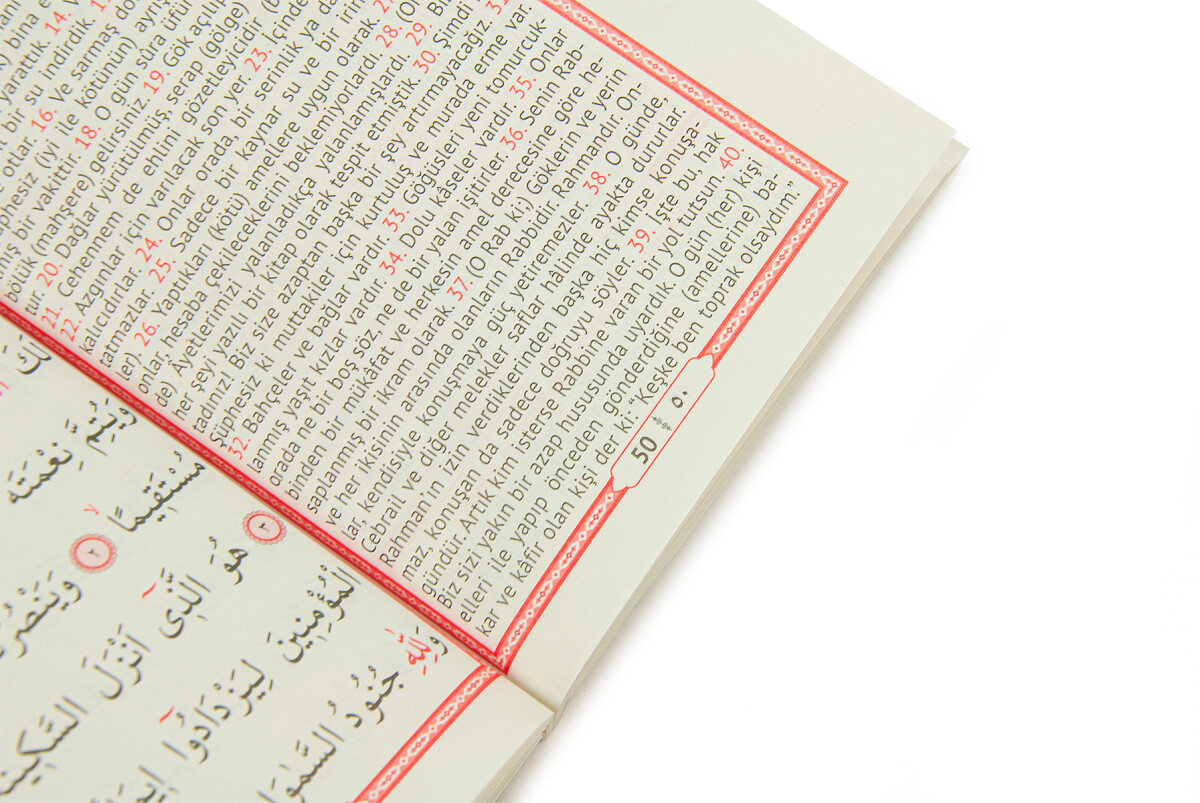 bina e
yarattık. 14.
bir su indirdik.
otlar. 16. Ve sarmaş
(iyi ile kötünün)
bir vakittir. 18. O gün sûra
bölük (mahşere) gelirsiniz. 19. Gök
tur. 20. Dağlar yürütülmüş, serap (gölge)
21. Cehennem de ehlini gözetleyicidir.
22. Azgınlar için varılacak son yer. 23.
kalıcıdırlar. 24. Onlar orada, bir serinlik ya
tamazlar. 25. Sadece bir kaynar su ve bir irin
ler). 26. Yaptıkları (kötü) amellere uygun olarak. 27.
onlar, hesaba çekileceklerini beklemiyorlardı. 28.
de) Âyetlerimizi yalanladıkça yalanlamışlardı. 29.
her şeyi yazılı bir kitap olarak tespit etmiştik. 30. Şimdi
tadınız! Biz size azaptan başka bir şey artırmayacağız. 31.
Şüphesiz ki muttakiler için kurtuluş ve murada erme var.
32. Bahçeler ve bağlar vardır. 33. Göğüsleri yeni tomurcuk-
lanmış yaşıt kızlar vardır. 34. Dolu kâseler vardır. 35. Onlar
orada ne bir boş söz, ne de bir yalan işitirler. 36. Senin Rab-
linden bir mükâfat ve herkesin amel derecesine göre he-
saplanmış bir ikram olarak. 37. (O Rab ki;) Göklerin ve yerin
ve her ikisinin arasında olanların Rabbidir. Rahmandır. On-
lar, kendisiyle konuşmaya güç yetiremezler. 38. O günde,
Cebrail ve diğer melekler saflar hâlinde ayakta dururlar.
Rahman'ın izin verdiklerinden başka hiç kimse konuşa-
maz, konuşan da sadece doğruyu söyler. 39. İşte bu, hak
gündür. Artık kim isterse Rabbine varan bir yol tutsun. 40.
Biz sizi yakın bir azap hususunda uyardık. O gün (her) kişi
elleri ile yapıp önceden gönderdiğine (amellerine) ba-
kar ve kâfir olan kişi der ki: “Keşke ben toprak olsaydım.”
50 ٥٠
وَيُتِمَّ نِعْمَتَهُ
مُسْتَقِيمًا ٢
هُوَ الَّذِى اَنْزَلَ ٣
الْمُؤْمِنِينَ لِيَزْدَادُوا
وَلِلّٰهِ جُنُودُ